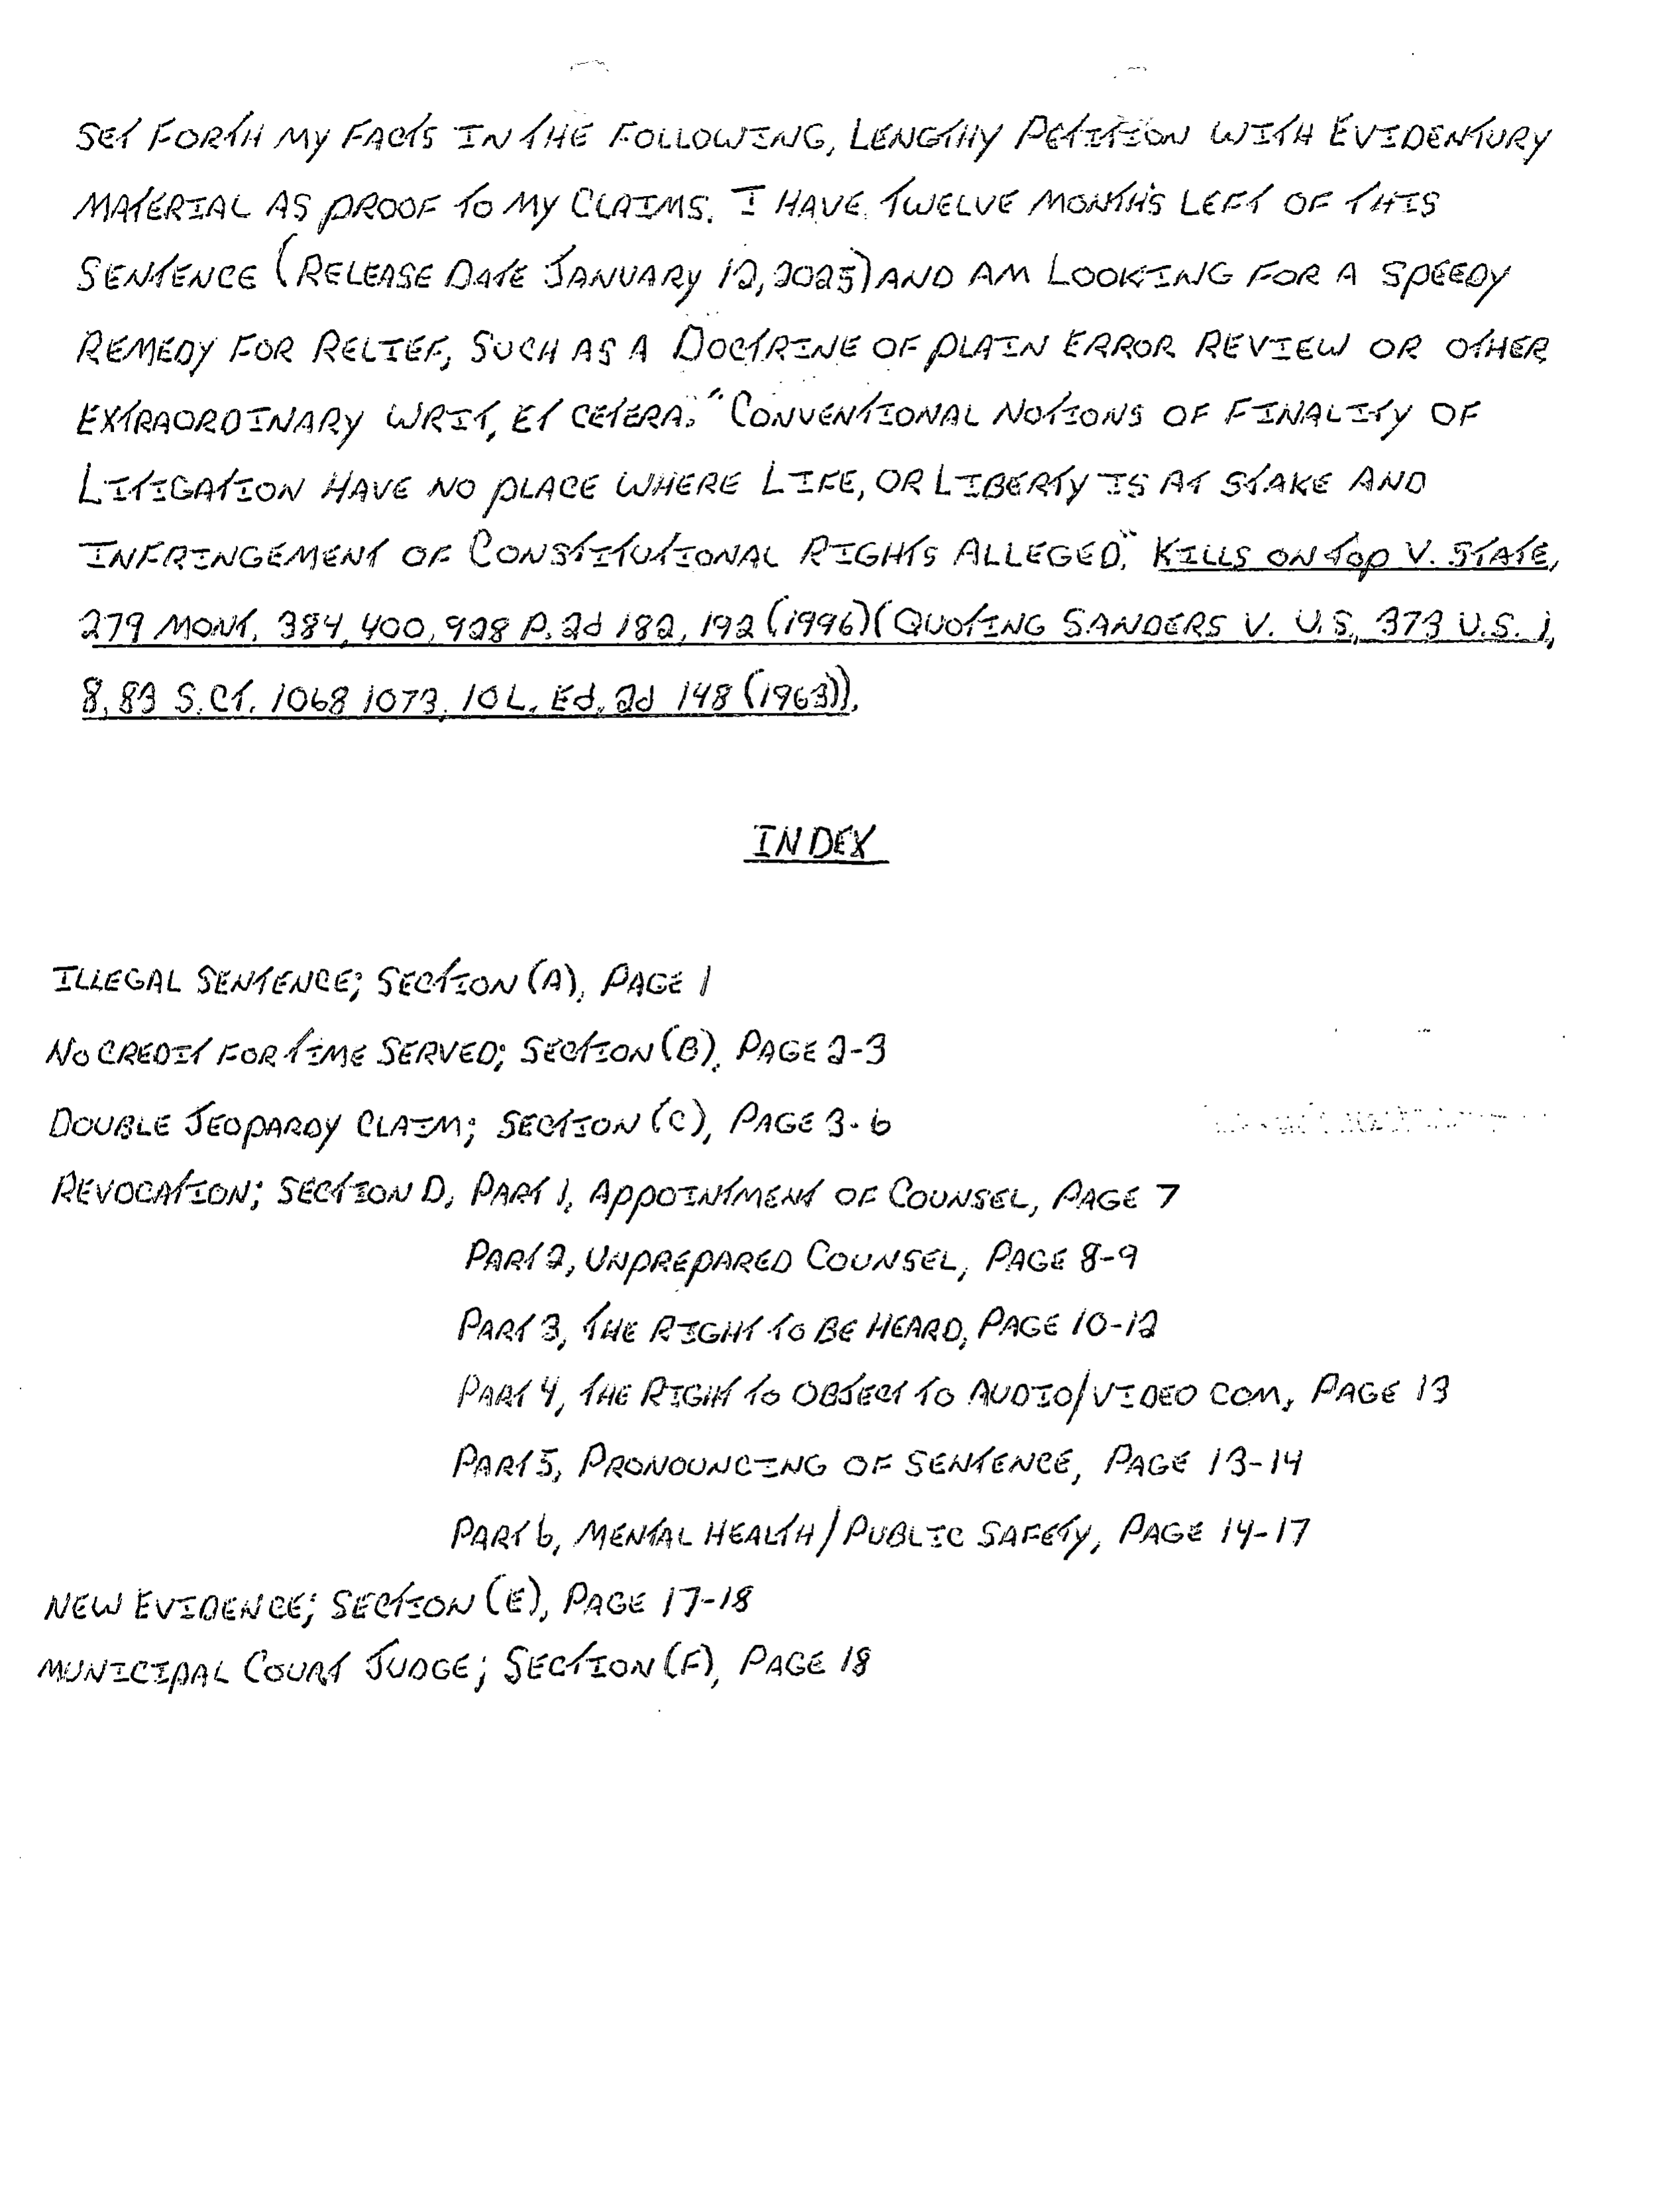 SET FORTH MY FACTS IN THE FOLLOWING, LENGTHY PETITION WITH EVIDENTURY
MATERIAL AS PROOF TO MY CLAIMS. I HAVE TWELVE MONTHS LEFT OF THIS
SENTENCE (RELEASE DATE JANUARY 12, 2025) AND AM LOOKING FOR A SPEEDY
REMEDY FOR RELIEF, SUCH AS A DOCTRINE OF PLAIN ERROR REVIEW OR OTHER
EXTRAORDINARY WRIT, ET CETERA. "CONVENTIONAL NOTIONS OF FINALITY OF
LITIGATION HAVE NO PLACE WHERE LIFE, OR LIBERTY IS AT STAKE AND
INFRINGEMENT OF CONSTITUTIONAL RIGHTS ALLEGED." KILLS ON TOP V. STATE,
279 MONT. 384, 400, 928 P. 2d 182, 192 (1996) (QUOTING SANDERS V. U.S, 373 U.S. 1,
8, 83 S.CT. 1068 1073, 10 L. Ed. 2d 148 (1963)).
INDEX
ILLEGAL SENTENCE; SECTION (A), PAGE 1
NO CREDIT FOR TIME SERVED; SECTION (B), PAGE 2-3
DOUBLE JEOPARDY CLAIM; SECTION (C), PAGE 3-6
REVOCATION; SECTION D, PART 1, APPOINTMENT OF COUNSEL, PAGE 7
PART 2, UNPREPARED COUNSEL, PAGE 8-9
PART 3, THE RIGHT TO BE HEARD, PAGE 10-12
PART 4, THE RIGHT TO OBJECT TO AUDIO/VIDEO COM, PAGE 13
PART 5, PRONOUNCING OF SENTENCE, PAGE 13-14
PART 6, MENTAL HEALTH/PUBLIC SAFETY, PAGE 14-17
NEW EVIDENCE; SECTION (E), PAGE 17-18
MUNICIPAL COURT JUDGE; SECTION (F), PAGE 18